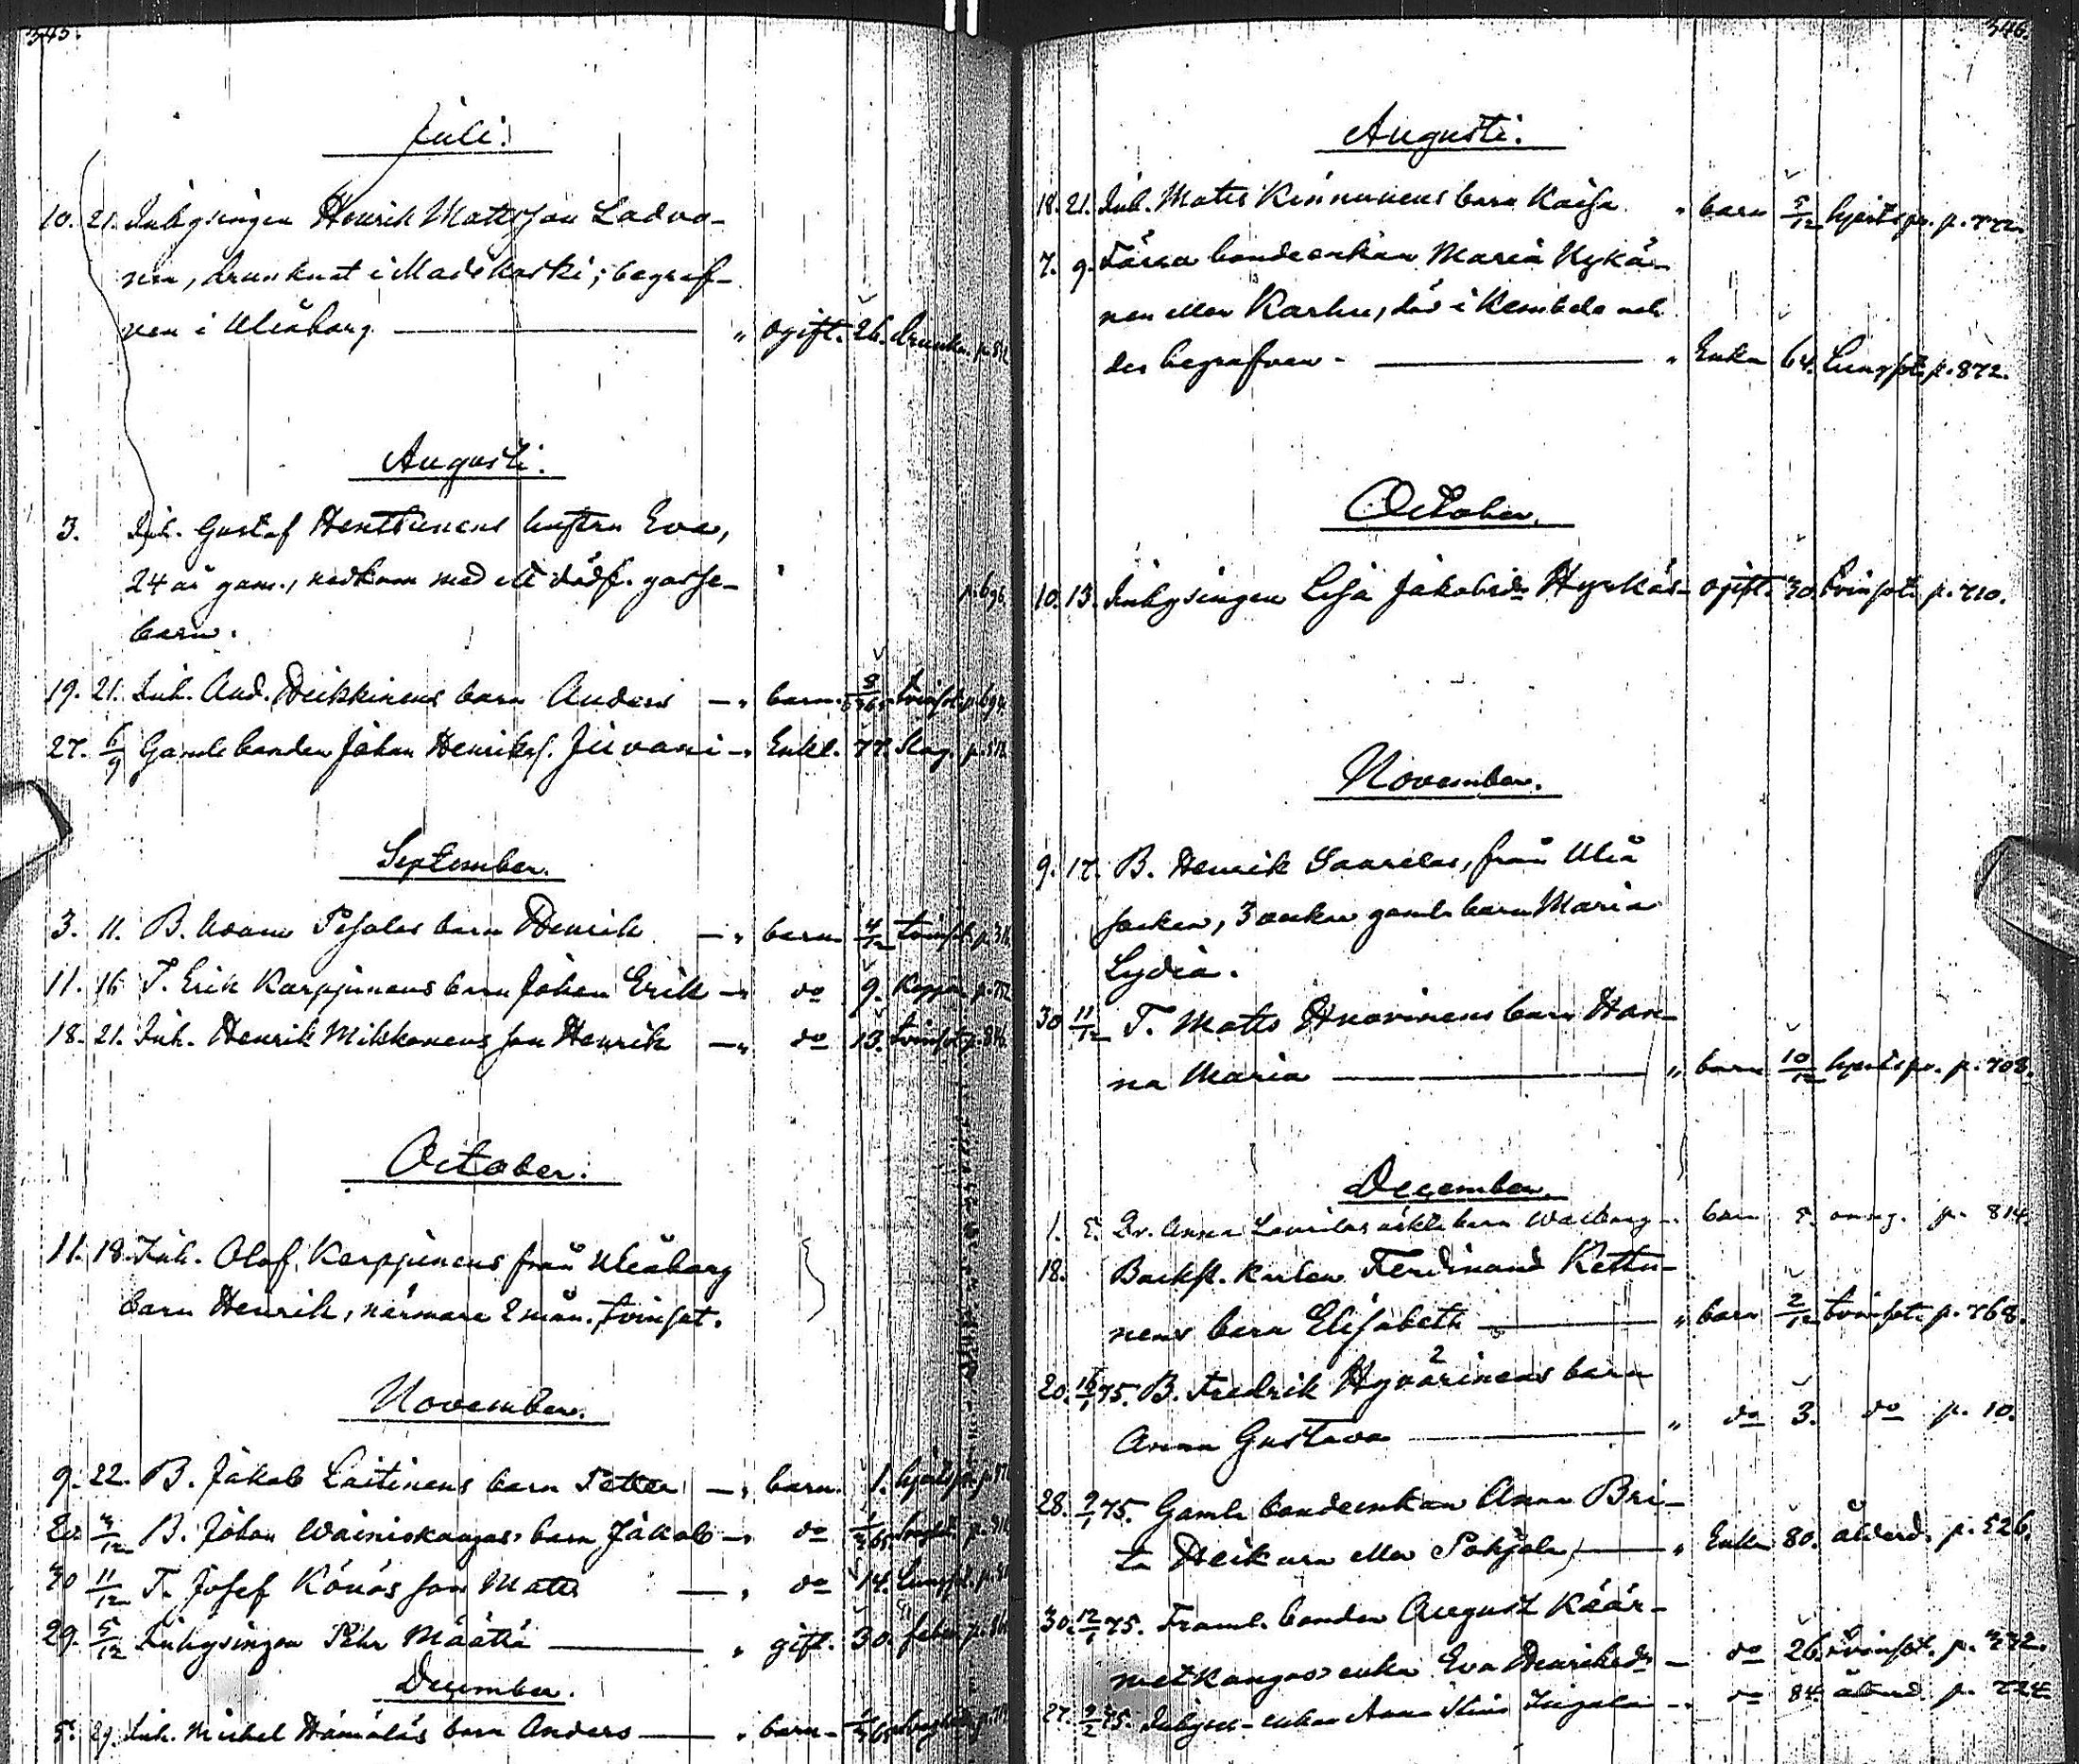 345.
Juli.
10. 21. Inhysingen Henrik Mattsson Ladva-
nen, drunknat i Madekoski; begraf-
ven i Uleåborg — " ogift. 26. drunkn.
Augusti.
3. Inh. Gustaf Henttunens hustru Eva,
24 år gam., nedkom med ett dödf. gosse- p. 696
barn.
19. 21. Inh. And. Heikkinens barn Anders — " barn. tvinsot. p. 694
27. 6/9 Gamle bonden Johan Henrikss. Juvani — " Enkl. 77. Slag.
September.
3. 11. B. Adam Pesolas barn Henrik — " barn 4/12 tvinsot.
11. 16 T. Erik Karppinens barn Johan Erik — " do 9. Koppor
18. 21. Inh. Henrik Mikkonens son Henrik — " do 13. tvinsot
October.
11. 18. Inh. Olof Karppinens från Uleåborg
barn Henrik, närmare 2 mån. tvinsot.
November.
9. 22. B. Jakob Laitinens barn Petter — " barn. 1.
20 4/12 B. Johan Wainiokangas barn Jakob — " do
30 11/12 T. Josef Könös son Matts — " do 14. Lungsot.
29. 5/12 Inhysingen Pehr Määttä — " gift. 30. feber
December.
5. 29. Inh. Michel Hämäläs barn Anders — " barn
346.
Augusti.
18. 21. Inh. Matts Kinnunens barn Kaisa " barn 5/12 hjertspr. p. 772.
7. 9. Förra bondeenkan Maria Nykä-
nen eller Karhu, död i Kembele och
der begrafven — " Enka 64. Lungsot. p. 872.
October.
10. 13. Inhysingen Lisa Jakobsdr Hyrkäs — ogift. 30. tvinsot. p. 710.
November.
9. 17. B. Henrik Saarelas, från Uleå
socken, 3 veckor gamla barn Maria
Lydia.
30 11/12 T. Matts Huovinens barn Han-
na Maria — " barn 10/12 hjertspr. p. 708.
December.
1. 5. Dr. Anna Laurilas oäkta barn Walborg — " barn 5. p. 814.
18. Backst. karlen Ferdinand Kettu-
nens barn Elisabeth — " barn 2/12 tvinsot. p. 768.
20. 16/1 75. B. Fredrik Hyvärinens 2 barn
Anna Gustava — " do 3. do p. 10.
28. 9/1 75. Gamla bondeenkan Anna Bri-
ta Heikura eller Pohjola, — " Enka 80. ålderd. p. 526.
30. 12/1 75. Framl. bonden August Käär-
metkangas enka Eva Henriksdr — do 26. tvinsot. p. 772.
27. 9/2 75. Inhyses-enkan Anna Stina — " do 84. ålderd. p. 724